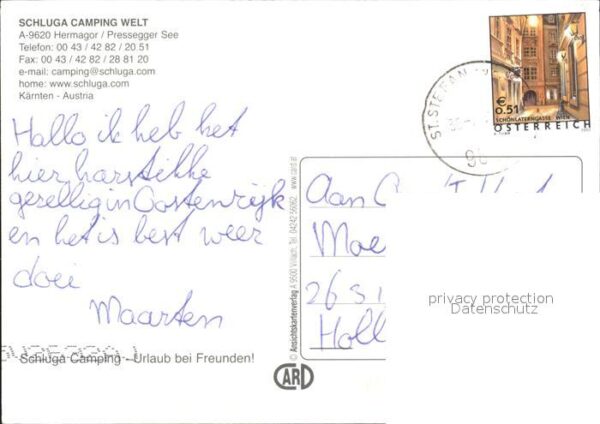 SCHLUGA CAMPING WELT
A-9620 Hermagor / Pressegger See
Telefon: 00 43 / 42 82 / 20 51
Fax: 00 43 / 42 82 / 28 81 20
e-mail: camping@schluga.com
home: www.schluga.com
Kärnten - Austria
Hallo ik heb het
hier harstikke
gesellig in Oostenrijk
en het is best weer
doei
Maarten
Schluga Camping - Urlaub bei Freunden!
© Ansichtskartenverlag A 9500 Villach, Tel. 04242 56062, www.card.at
CARD
ST. STEFAN
€ 0,51
SCHÖNLATERNGASSE, WIEN
ÖSTERREICH
Aan
Moe
Holl
privacy protection
Datenschutz